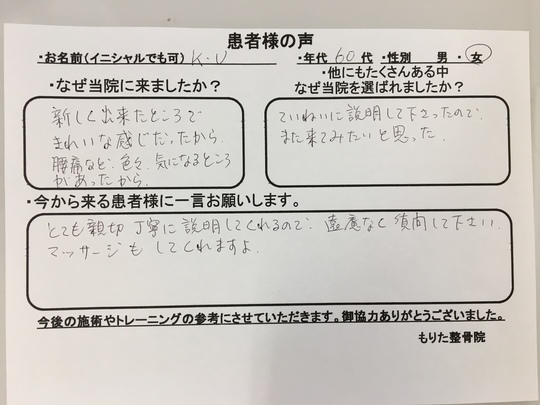 患者様の声
・お名前(イニシャルでも可) K.U ・年代 60 代 ・性別 男 ・ 女
・なぜ当院に来ましたか？
・他にもたくさんある中
なぜ当院を選ばれましたか？
新しく出来たところで
きれいな感じだったから。
腰痛など、色々、気になるところ
があったから。
ていねいに説明して下さったので、
また来てみたいと思った。
・今から来る患者様に一言お願いします。
とても親切 丁寧に説明してくれるので、遠慮なく質問して下さい。
マッサージもしてくれますよ。
今後の施術やトレーニングの参考にさせていただきます。御協力ありがとうございました。
もりた整骨院